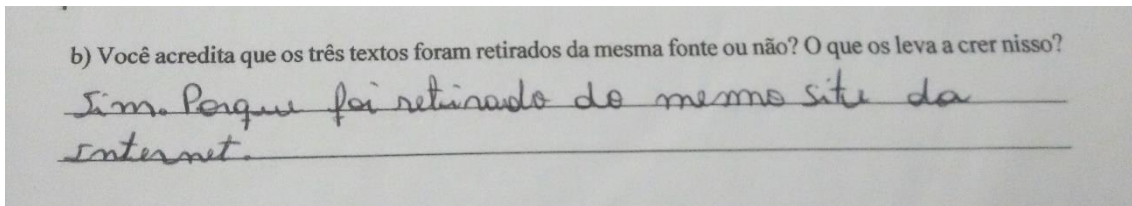 b) Você acredita que os três textos foram retirados da mesma fonte ou não? O que os leva a crer nisso?
Sim. Porque foi retirado do mesmo site da
Internet.